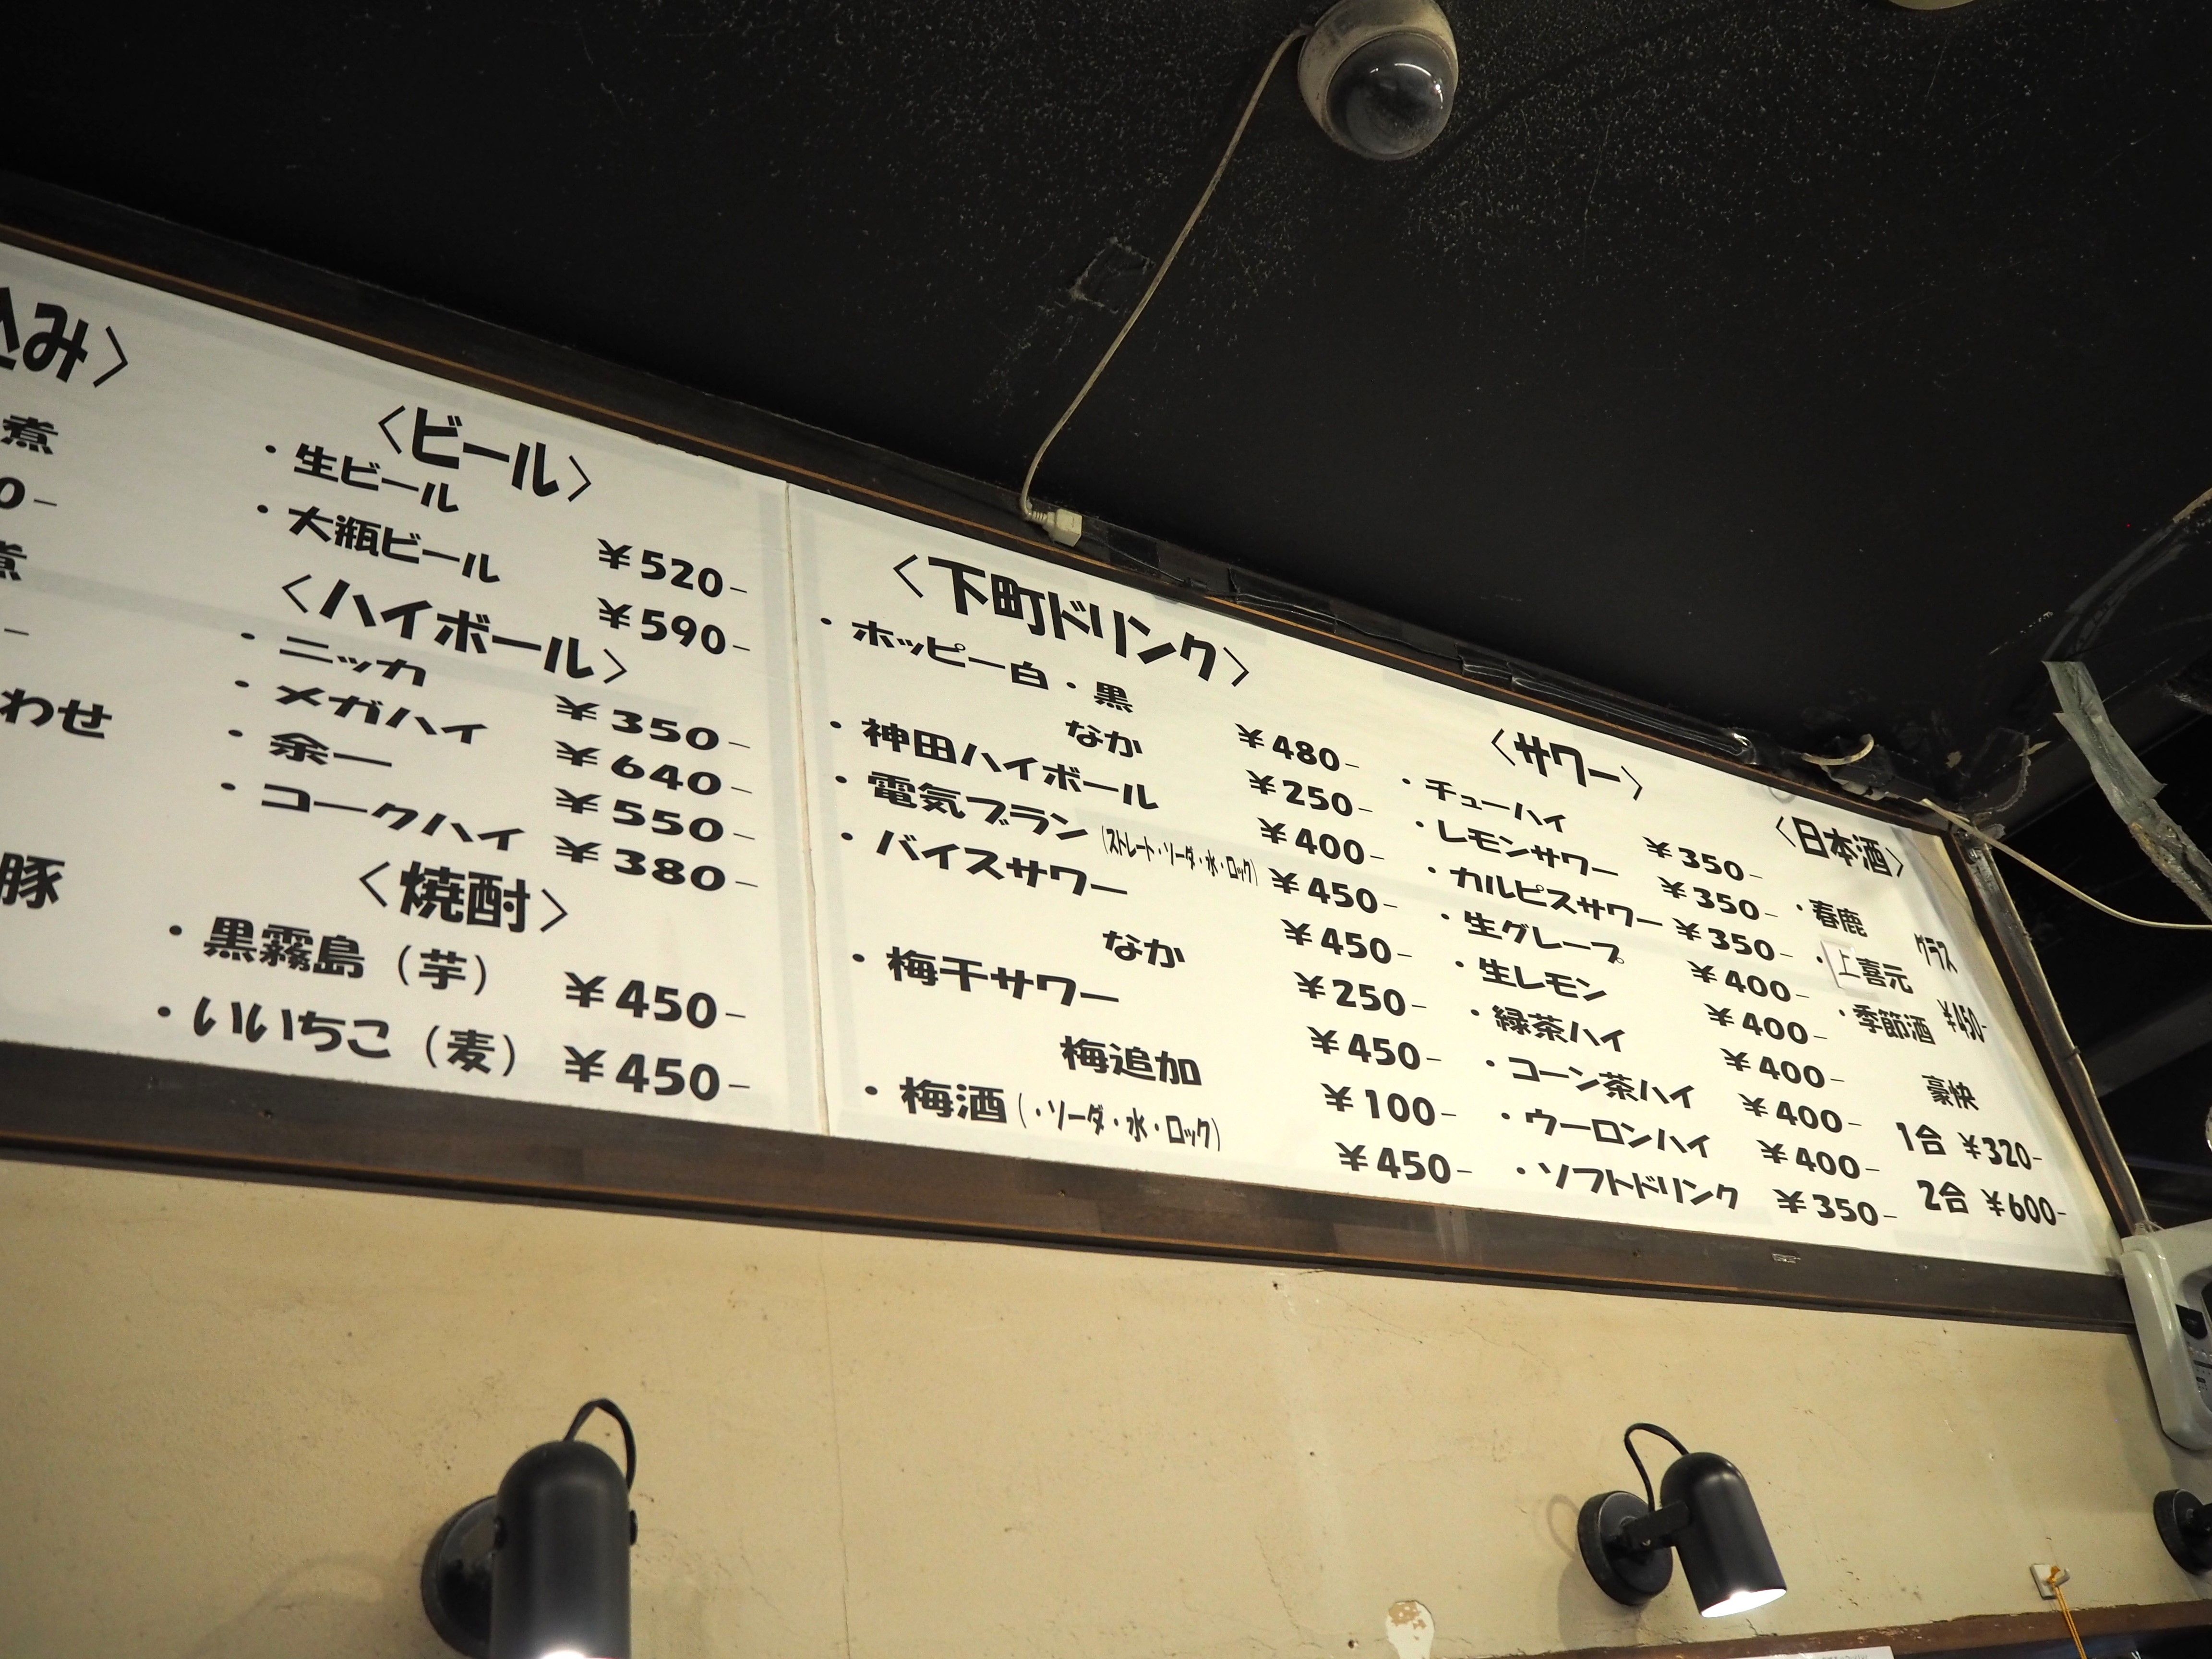 込み〉
煮
0-
煮
-
わせ
豚
〈ビール〉
・生ビール ¥520-
・大瓶ビール ¥590-
〈ハイボール〉
・ニッカ ¥350-
・メガハイ ¥640-
・余一 ¥550-
・コークハイ ¥380-
〈焼酎〉
・黒霧島（芋） ¥450-
・いいちこ（麦） ¥450-
〈下町ドリンク〉
・ホッピー白・黒 ¥480-
なか ¥250-
・神田ハイボール ¥400-
・電気ブラン（ストレート・ソーダ・水・ロック） ¥450-
・バイスサワー ¥450-
なか ¥250-
・梅干サワー ¥450-
梅追加 ¥100-
・梅酒（・ソーダ・水・ロック） ¥450-
〈サワー〉
・チューハイ ¥350-
・レモンサワー ¥350-
・カルピスサワー ¥350-
・生グレープ ¥400-
・生レモン ¥400-
・緑茶ハイ ¥400-
・コーン茶ハイ ¥400-
・ウーロンハイ ¥400-
・ソフトドリンク ¥350-
〈日本酒〉
・春鹿
グラス
・上喜元
・季節酒 ¥450-
豪快
1合 ¥320-
2合 ¥600-